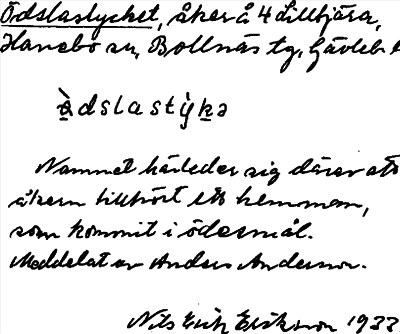 Ödslastycket, åker å 4 Lillbjära,
Hanebo sn, Bollnäs tg, Gävleb. l
ò̱dslastẏ́ḵə
Namnet härleder sig därav att
åkern tillhört ett hemman,
som kommit i ödesmål.
Meddelat av Anders Anderson.
Nils Erik Erikson 1933